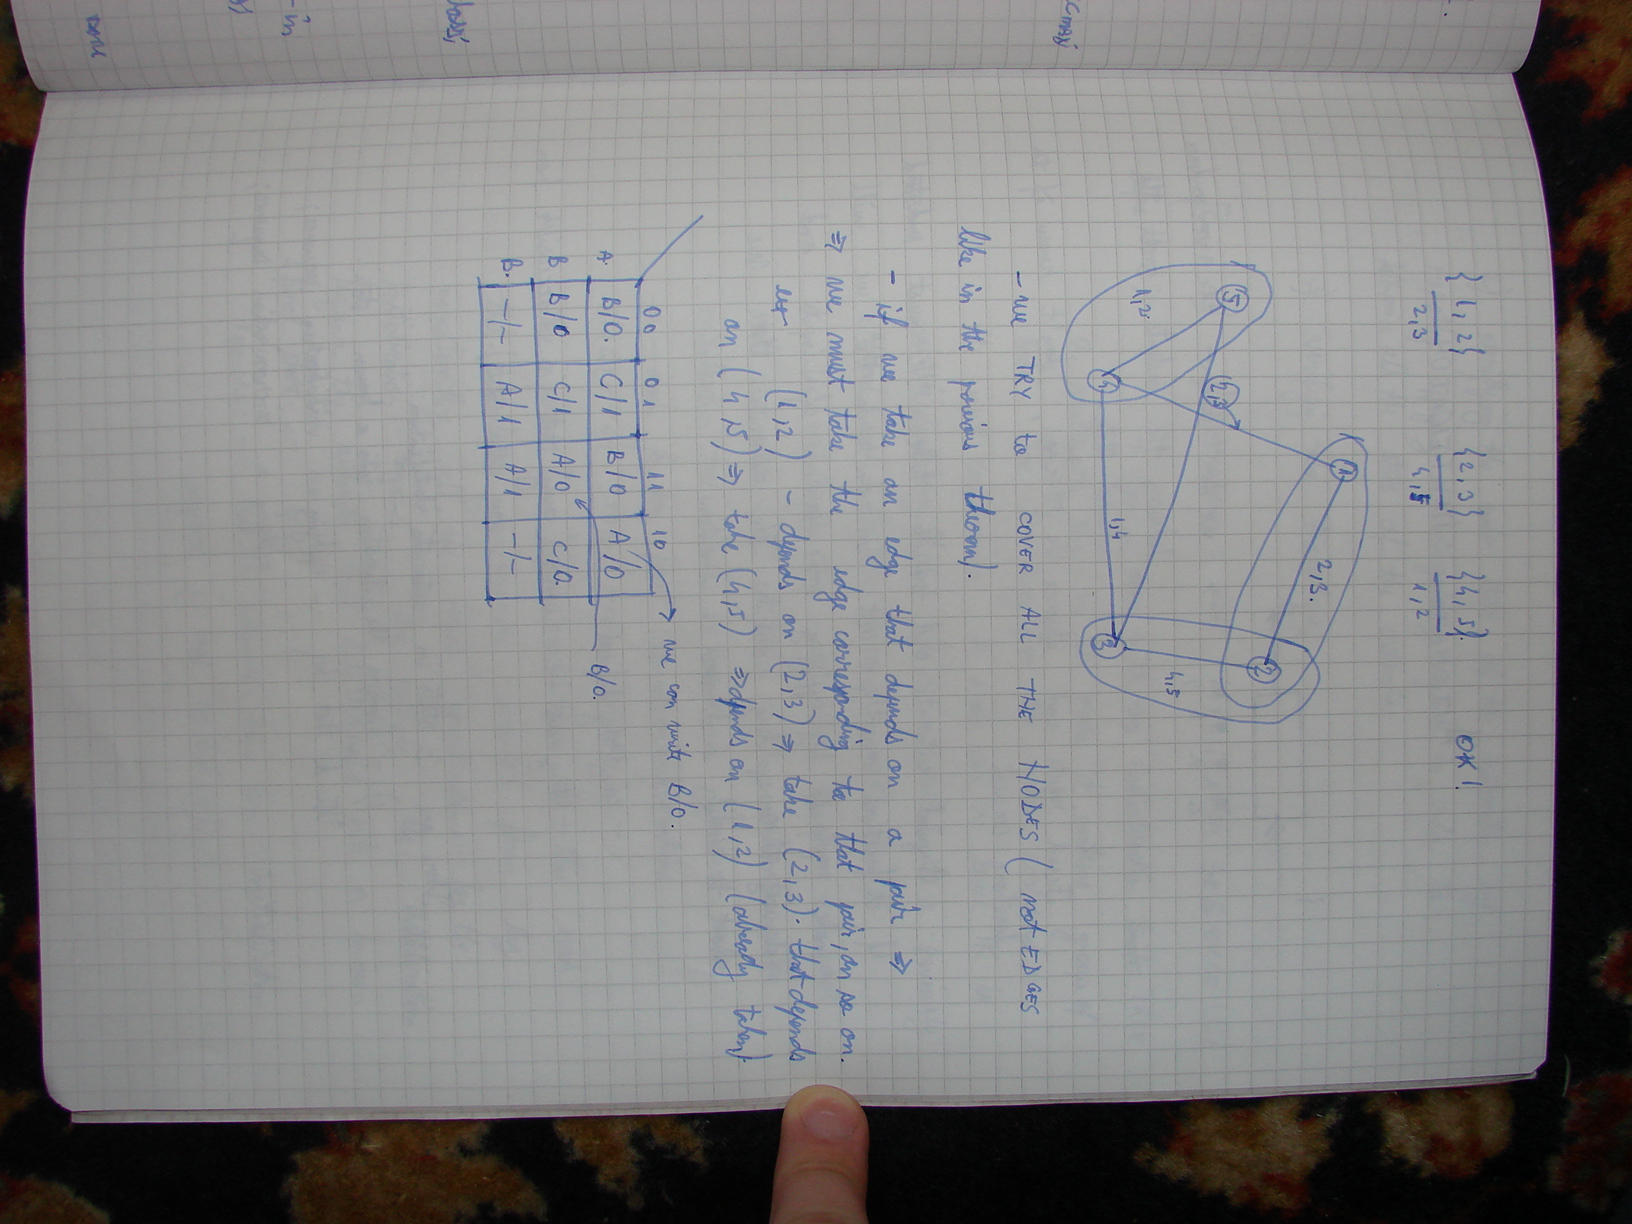 {1,2} {2,3} {4,5}. OK!
2,3 4,5 1,2
5 1
1,2 2,3 2,3.
4 2
1,4 4,5
3
- we TRY to COVER ALL THE NODES (not EDGES
like in the previous theorem).
- if we take an edge that depends on a pair ⇒
⇒ we must take the edge corresponding to that pair, an so on.
(1,2) - depends on (2,3) ⇒ take (2,3). that depends
on (4,5) ⇒ take (4,5) ⇒ depends on (1,2) (already taken)
00 01 11 10 we can write B/0.
A. B/0. C/1 B/0 A/0
B B/0 C/1 A/0 C/0. B/0.
B. -/- A/1 A/1 -/-